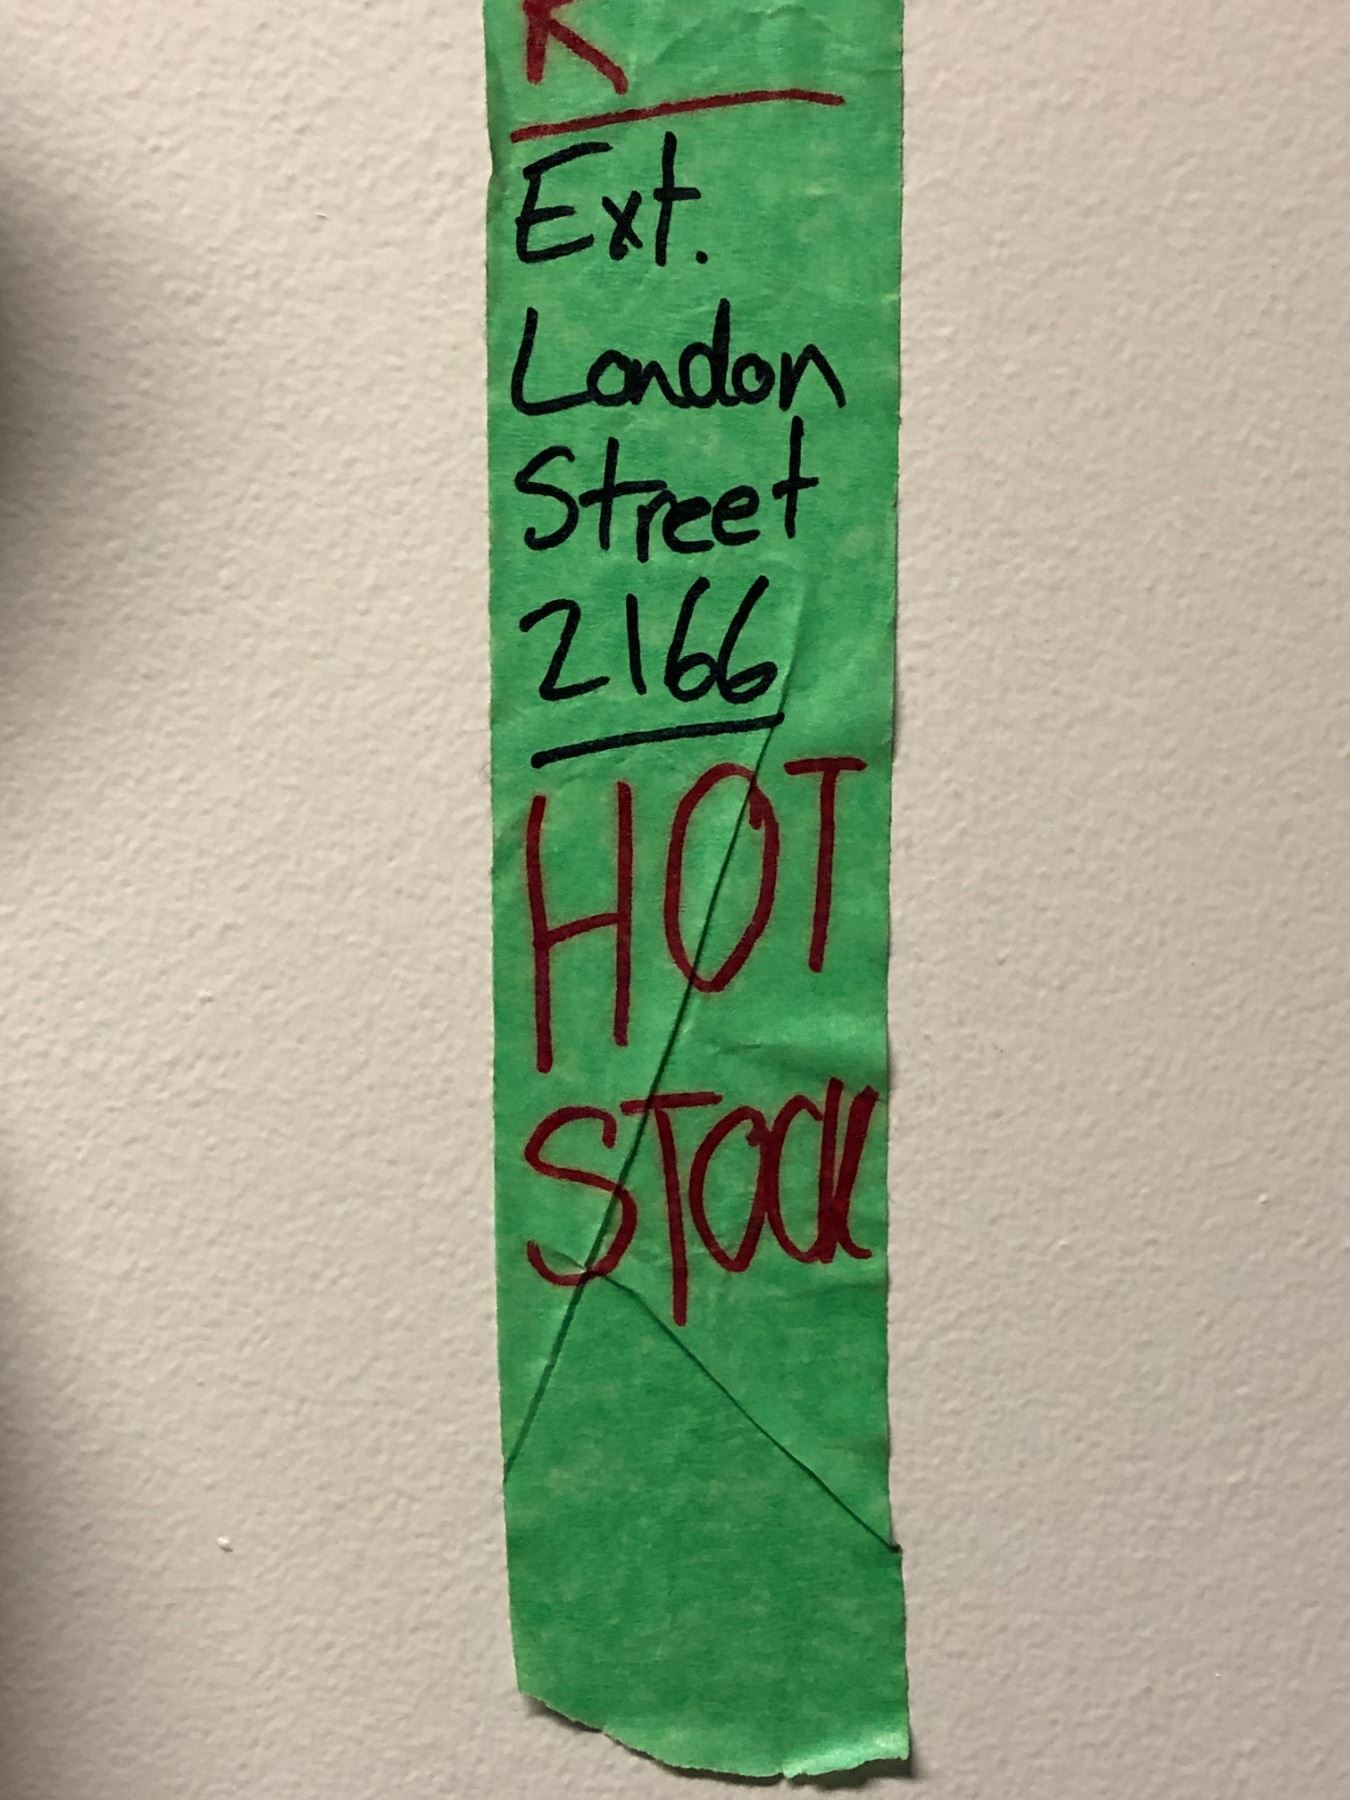 K
Ext.
London
Street
2166
HOT
STOCK